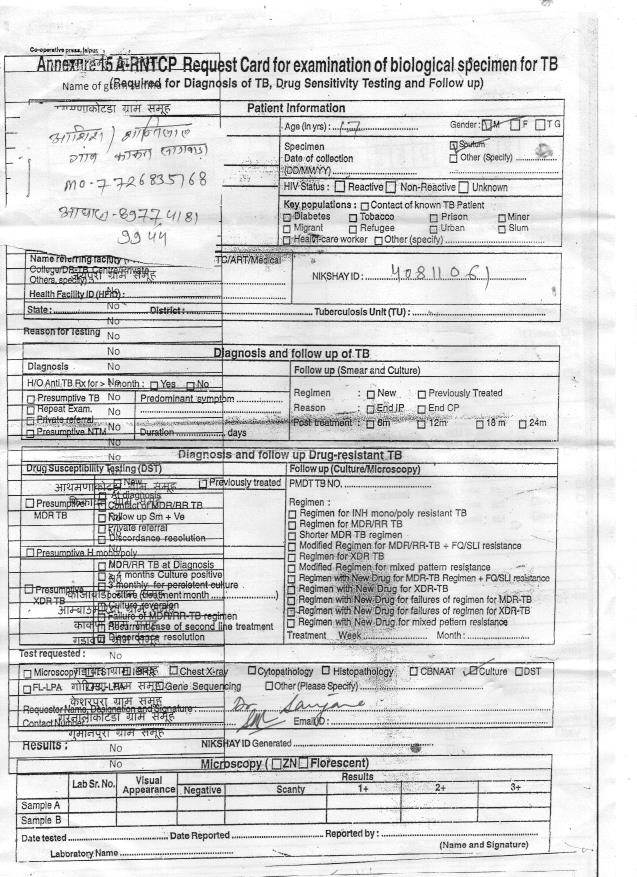 Co-operative press, Jaipur
Annexure 15 A-RNTCP Request Card for examination of biological specimen for TB
(Required for Diagnosis of TB, Drug Sensitivity Testing and Follow up)
Name of gram
ग्राम समूह
Patient Information
Age (in yrs) : 17 Gender: M F TG
Specimen Sputum
Date of collection Other (Specify)
(DD/MM/YY)
मो-7726835768
HIV Status : Reactive Non-Reactive Unknown
आधार-89774181
9944
Key populations : Contact of known TB Patient
Diabetes Tobacco Prison Miner
Migrant Refugee Urban Slum
Health-care worker Other (specify)
Name referring facility TC/ART/Medical
College/DR-TB Centre/Private
Others, specify) जयपुरा ग्राम समूह NIKSHAY ID : 40811061
Health Facility ID (HFID) : No
State: No District: Tuberculosis Unit (TU) :
No
Reason for Testing No
No
Diagnosis and follow up of TB
Diagnosis No Follow up (Smear and Culture)
H/O Anti TB Rx for > 1 month : Yes No
Regimen : New Previously Treated
Presumptive TB No Predominant symptom
Repeat Exam. No Reason : End IP End CP
Private referral No Post treatment : 6m 12m 18 m 24m
Presumptive NTM No Duration days
No
Diagnosis and follow up Drug-resistant TB
Drug Susceptibility Testing (DST) Follow up (Culture/Microscopy)
New Previously treated PMDT TB NO.
आथमणाकोटडा ग्राम समूह
At diagnosis Regimen :
Presumptive Contact of MDR/RR TB Regimen for INH mono/poly resistant TB
MDR TB Follow up Sm + Ve Regimen for MDR/RR TB
Private referral Shorter MDR TB regimen
Discordance resolution Modified Regimen for MDR/RR-TB + FQ/SLI resistance
Presumptive H mono/poly Regimen for XDR TB
MDR/RR TB at Diagnosis Modified Regimen for mixed pattern resistance
4 months Culture positive Regimen with New Drug for MDR-TB Regimen + FQ/SLI resistance
Presumptive 3 monthly for persistent culture Regimen with New Drug for XDR-TB
XDR TB positive (treatment month ) Regimen with New Drug for failures of regimen for MDR-TB
Culture reversion Regimen with New Drug for failures of regimen for XDR-TB
Failure of MDR/RR-TB regimen Regimen with New Drug for mixed pettern resistance
Recurrent case of second line treatment Treatment Week Month :
Discordance resolution
Test requested : No
Microscopy TST IGRA Chest X-ray Cytopathology Histopathology CBNAAT Culture DST
FL-LPA SL-LPA Gene Sequencing Other (Please Specify)
केशरपुरा ग्राम समूह
Requestor Name, Designation and Signature : Dr Sanjana
Contact Number : Email ID :
गुमानपुरा ग्राम समूह
Results : No NIKSHAY ID Generated
No Microscopy ( ZN Florescent)
Lab Sr. No. Visual Appearance Results
Negative Scanty 1+ 2+ 3+
Sample A
Sample B
Date tested Date Reported Reported by :
(Name and Signature)
Laboratory Name